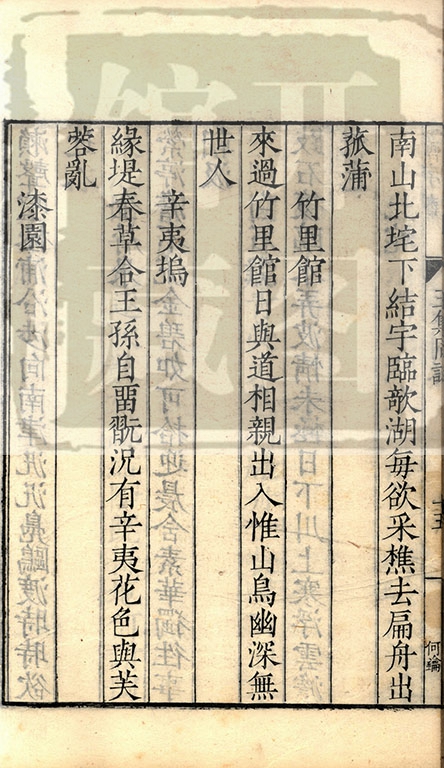 南山北垞下結宇臨欹湖每欲采樵去扁舟出
菰蒲
竹里館
來過竹里館日與道相親出入惟山鳥幽深無
世人
辛夷塢
緣堤春草合王孫自留翫況有辛夷花色與芙
蓉亂
漆園
何